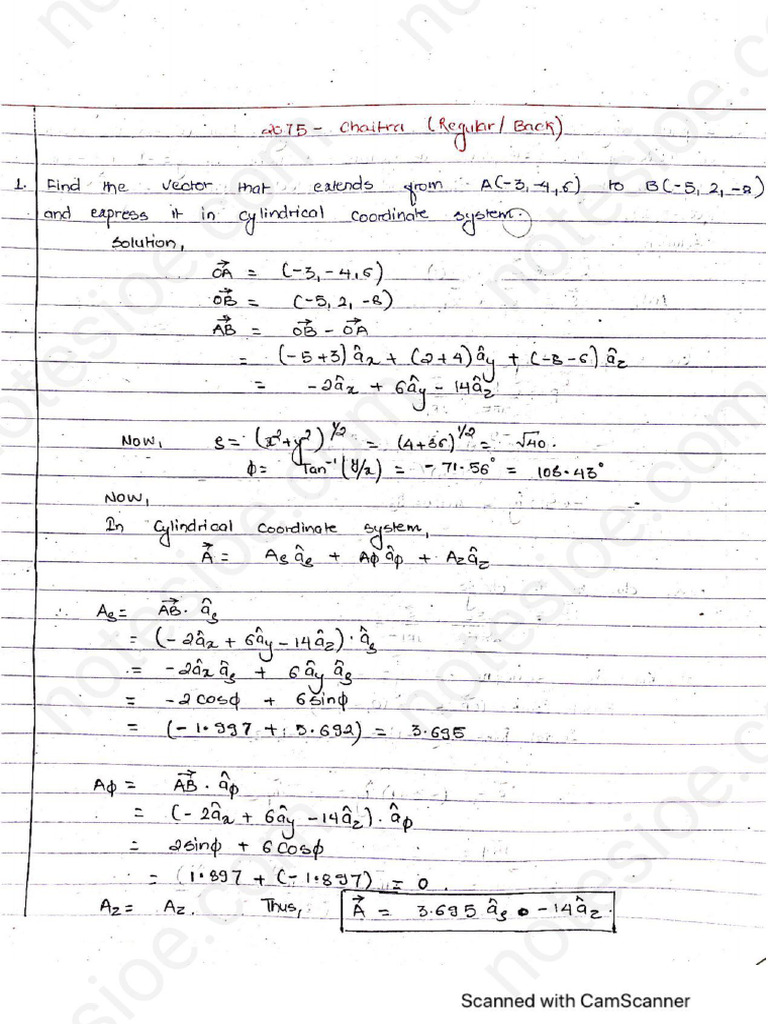 2075 - Chaitra (Regular/ Back)
1. Find the vector that extends from A(-3,-4,6) to B(-5, 2, -8)
and express it in cylindrical coordinate system.
Solution,
→OA = (-3, -4, 6)
→OB = (-5, 2, -8)
→AB = →OB - →OA
= (-5+3) âx + (2+4) ây + (-8-6) âz
= -2âx + 6ây - 14âz
Now, ρ = (x²+y²)^1/2 = (4+36)^1/2 = √40.
φ = Tan⁻¹(y/x) = -71.56° = 108.43°
Now,
In cylindrical coordinate system,
→A = Aρ âρ + Aφ âφ + Az âz
∴ Aρ = →AB. âρ
= (-2âx + 6ây - 14âz). âρ
= -2âx âρ + 6 ây âρ
= -2cosφ + 6sinφ
= (-1.997 + 5.692) = 3.695
Aφ = →AB. âφ
= (-2âx + 6ây - 14âz). âφ
= 2sinφ + 6cosφ
= (1.897 + (-1.897) = 0.
Az = Az. Thus, →A = 3.695 âρ - 14âz.
Scanned with CamScanner
notesioe.com